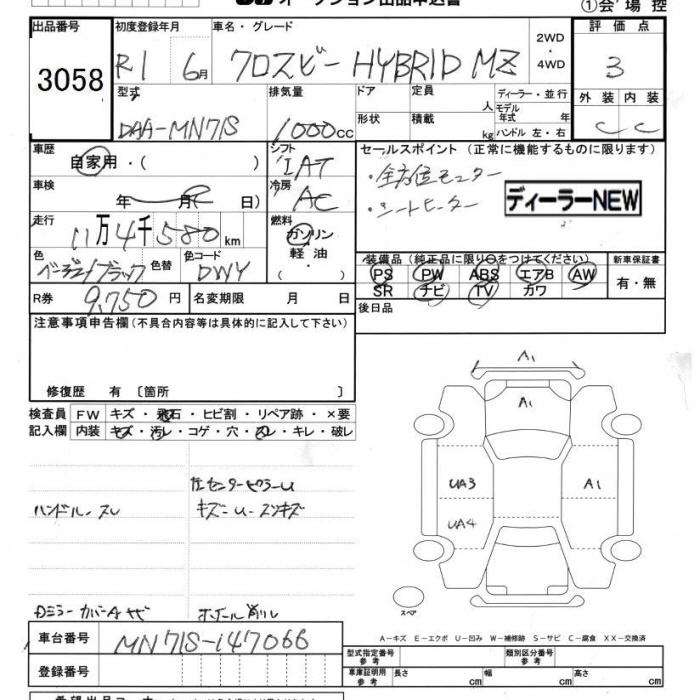 オークション出品申込書
①会場控
出品番号 初度登録年月 車名・グレード 2WD・4WD 評価点
3058 R1 6月 クロスビー HYBRID MZ 3
型式 排気量 ドア 定員 人 ディーラー・並行 外装 内装
DAA-MN71S 1000cc 形状 積載 kg モデル年式 年 ハンドル 左・右 C C
車歴 自家用・( ) シフト IAT セールスポイント (正常に機能するものに限ります)
・全方位モニター
・シートヒーター
ディーラーNEW
車検 年 月 日) 冷房 AC
走行 11万4千580km 燃料 ガソリン・軽油・( )
色 ブラック 色替 色コード DWY
装備品 (純正品に限り○をつけてください) 新車保証書
PS PW ABS エアB AW 有・無
SR ナビ TV カワ
R券 9,750円 名変期限 月 日 後日品
注意事項申告欄 (不具合内容等は具体的に記入して下さい)
修復歴 有 〔箇所 〕
検査員記入欄 FW キズ・飛石・ヒビ割・リペア跡・×要
内装 キズ・汚レ・コゲ・穴・スレ・キレ・破レ
左センターピラーU
ハンドルスレ キズ-U-スンキズ
Dミラーカバー ホイール削レ
A1
A1
UA3 A1
UA4
スペア
A-キズ E-エクボ U-凹み W-補修跡 S-サビ C-腐食 XX-交換済
車台番号 MN71S-147066 型式指定番号 参考 類別区分番号 参考
登録番号 車庫証明用 参考 長さ 幅 高さ